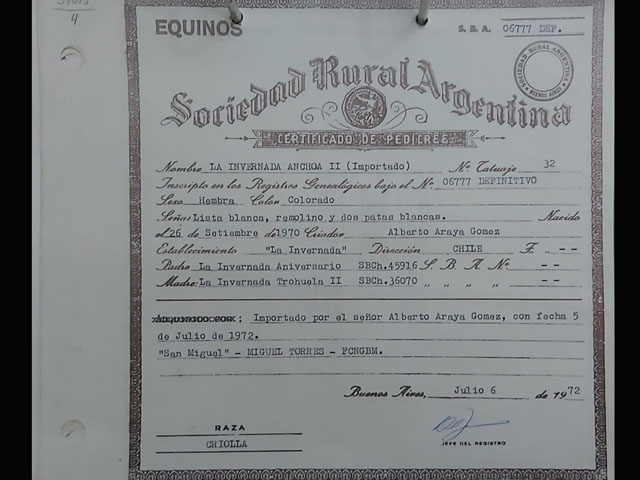 4
EQUINOS
S. B. A. 06777 DEF.
SOCIEDAD RURAL ARGENTINA
BUENOS AIRES
Sociedad Rural Argentina
CERTIFICADO DE PEDIGREE
Nombre LA INVERNADA ANCHOA II (Importado) No Tatuaje 32
Inscripto en los Registros Genealógicos bajo el No 06777 DEFINITIVO
Sexo Hembra Color Colorado
Señas Lista blanca, remolino y dos patas blancas. Nacido
el 26 de Setiembre de 1970 Criador Alberto Araya Gomez
Establecimiento "La Invernada" Dirección CHILE F. --
Padre La Invernada Aniversario SBCh.45916 S. B. A. No --
Madre: La Invernada Trohuela II SBCh.36070 „ „ „ „ --
: Importado por el señor Alberto Araya Gomez, con fecha 5
de Julio de 1972.
"San Miguel" - MIGUEL TORRES - FCNGBM.
Buenos Aires, Julio 6 de 1972
RAZA
CRIOLLA
JEFE DEL REGISTRO